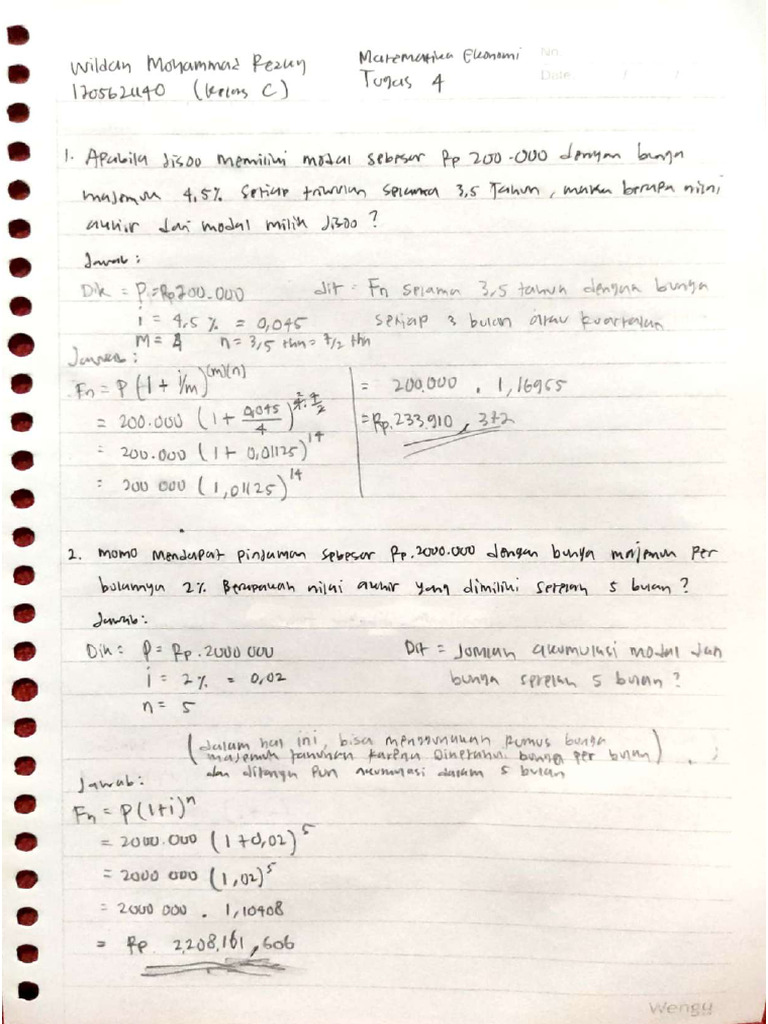 Wildan Mohammad Rezky
Matematika Ekonomi
No.
170562440 (Kelas C)
Tugas 4
Date / /
1. Apabila Jisoo memiliki modal sebesar Rp 200.000 dengan bunga
majemuk 4,5% setiap triwulan selama 3,5 Tahun, maka berapa nilai
akhir dari modal milik Jisoo?
Jawab:
Dik = P = Rp 200.000
dit = Fn selama 3,5 tahun dengan bunga
i = 4,5% = 0,045
setiap 3 bulan atau kuartalan
M = 4 n = 3,5 thn = 7/2 thn
Jawab:
Fn = P (1 + i/m)^(m)(n)
= 200.000 . 1,16955
= 200.000 (1 + 0,045/4)
= Rp. 233.910, 372
= 200.000 (1 + 0,01125)^14
= 200 000 (1,01125)^14
2. Momo Mendapat pinjaman sebesar Rp. 2000.000 dengan bunga majemuk per
bulannya 2% Berapakah nilai akhir yang dimiliki setelah 5 bulan?
Jawab:
Dik: P = Rp. 2000 000
Dit = Jumlah akumulasi modal dan
i = 2% = 0,02
bunga setelah 5 bulan?
n = 5
(dalam hal ini, bisa menggunakan rumus bunga
majemuk tahunan karena Diketahui bunga per bulan)
dan ditanya pun akumulasi dalam 5 bulan
Jawab:
Fn = P(1+i)^n
= 2000.000 (1+0,02)^5
= 2000 000 (1,02)^5
= 2000 000 . 1,10408
= Rp. 2.208.161, 606
Wengy